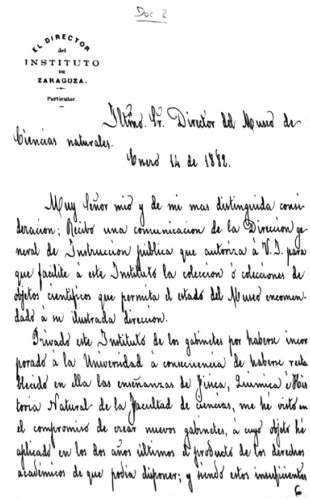 Doc 2
EL DIRECTOR
del
INSTITUTO
DE
ZARAGOZA.
Particular.
Iltmo. Sr. Director del Museo de
Ciencias naturales.
Enero 14 de 1882.
Muy Señor mio y de mi mas distinguida consi-
deracion: Recibo una comunicacion de la Direccion ge-
neral de Instruccion pública que autoriza á V.I. para
que facilite á este Instituto la coleccion ó colecciones de
objetos científicos que permita el estado del Museo encomen-
dado á su ilustrada direccion.
Privado este Instituto de los gabinetes por haberse incor
porado á la Universidad á consecuencia de haberse resta
blecido en ella las enseñanzas de Física, Química é His
toria Natural de la Facultad de ciencias, me hé visto en
el compromiso de crear nuevos gabinetes, á cuyo objeto hé
aplicado en los dos años últimos el producto de los derechos
académicos de que podia disponer; y siendo estos insuficientes
6